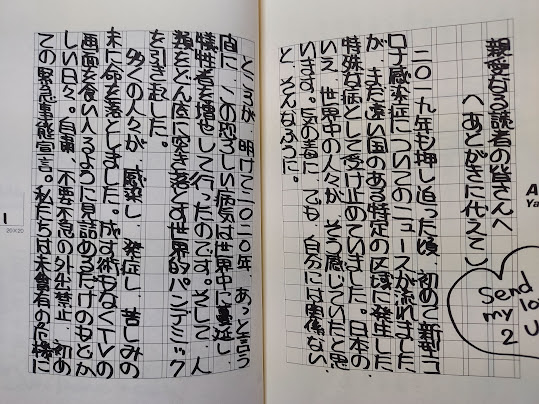 親愛なる読者の皆さんへ
(あとがきに代えて)
二〇一九年も押し迫った頃、初めて新型コ
ロナ感染症についてのニュースが流れました
が、まだ遠い国のある特定の区域に発生した
特殊な病として受け止めていました。日本の
いえ、世界中の人々が、そう感じていたと思
います。気の毒に、でも、自分には関係ない、
と、そんなふうに。
A
Ya
Send
my lo
2 U
ところが、明けて二〇二〇年、あっと言う
間に、この恐ろしい病気は世界中に蔓延し、
犠牲者を増やして行ったのです。そして、人
類をどん底に突き落とす世界的パンデミック
を引き起した。
多くの人々が、感染し、発症し、苦しみの
末に命を落としました。成す術もなくTVの
画面を食い入るように見詰めるだけのもどか
しい日々。自粛、不要不急の外出禁止、初め
ての緊急事態宣言。私たちは未曾有の危機に
1
20×20